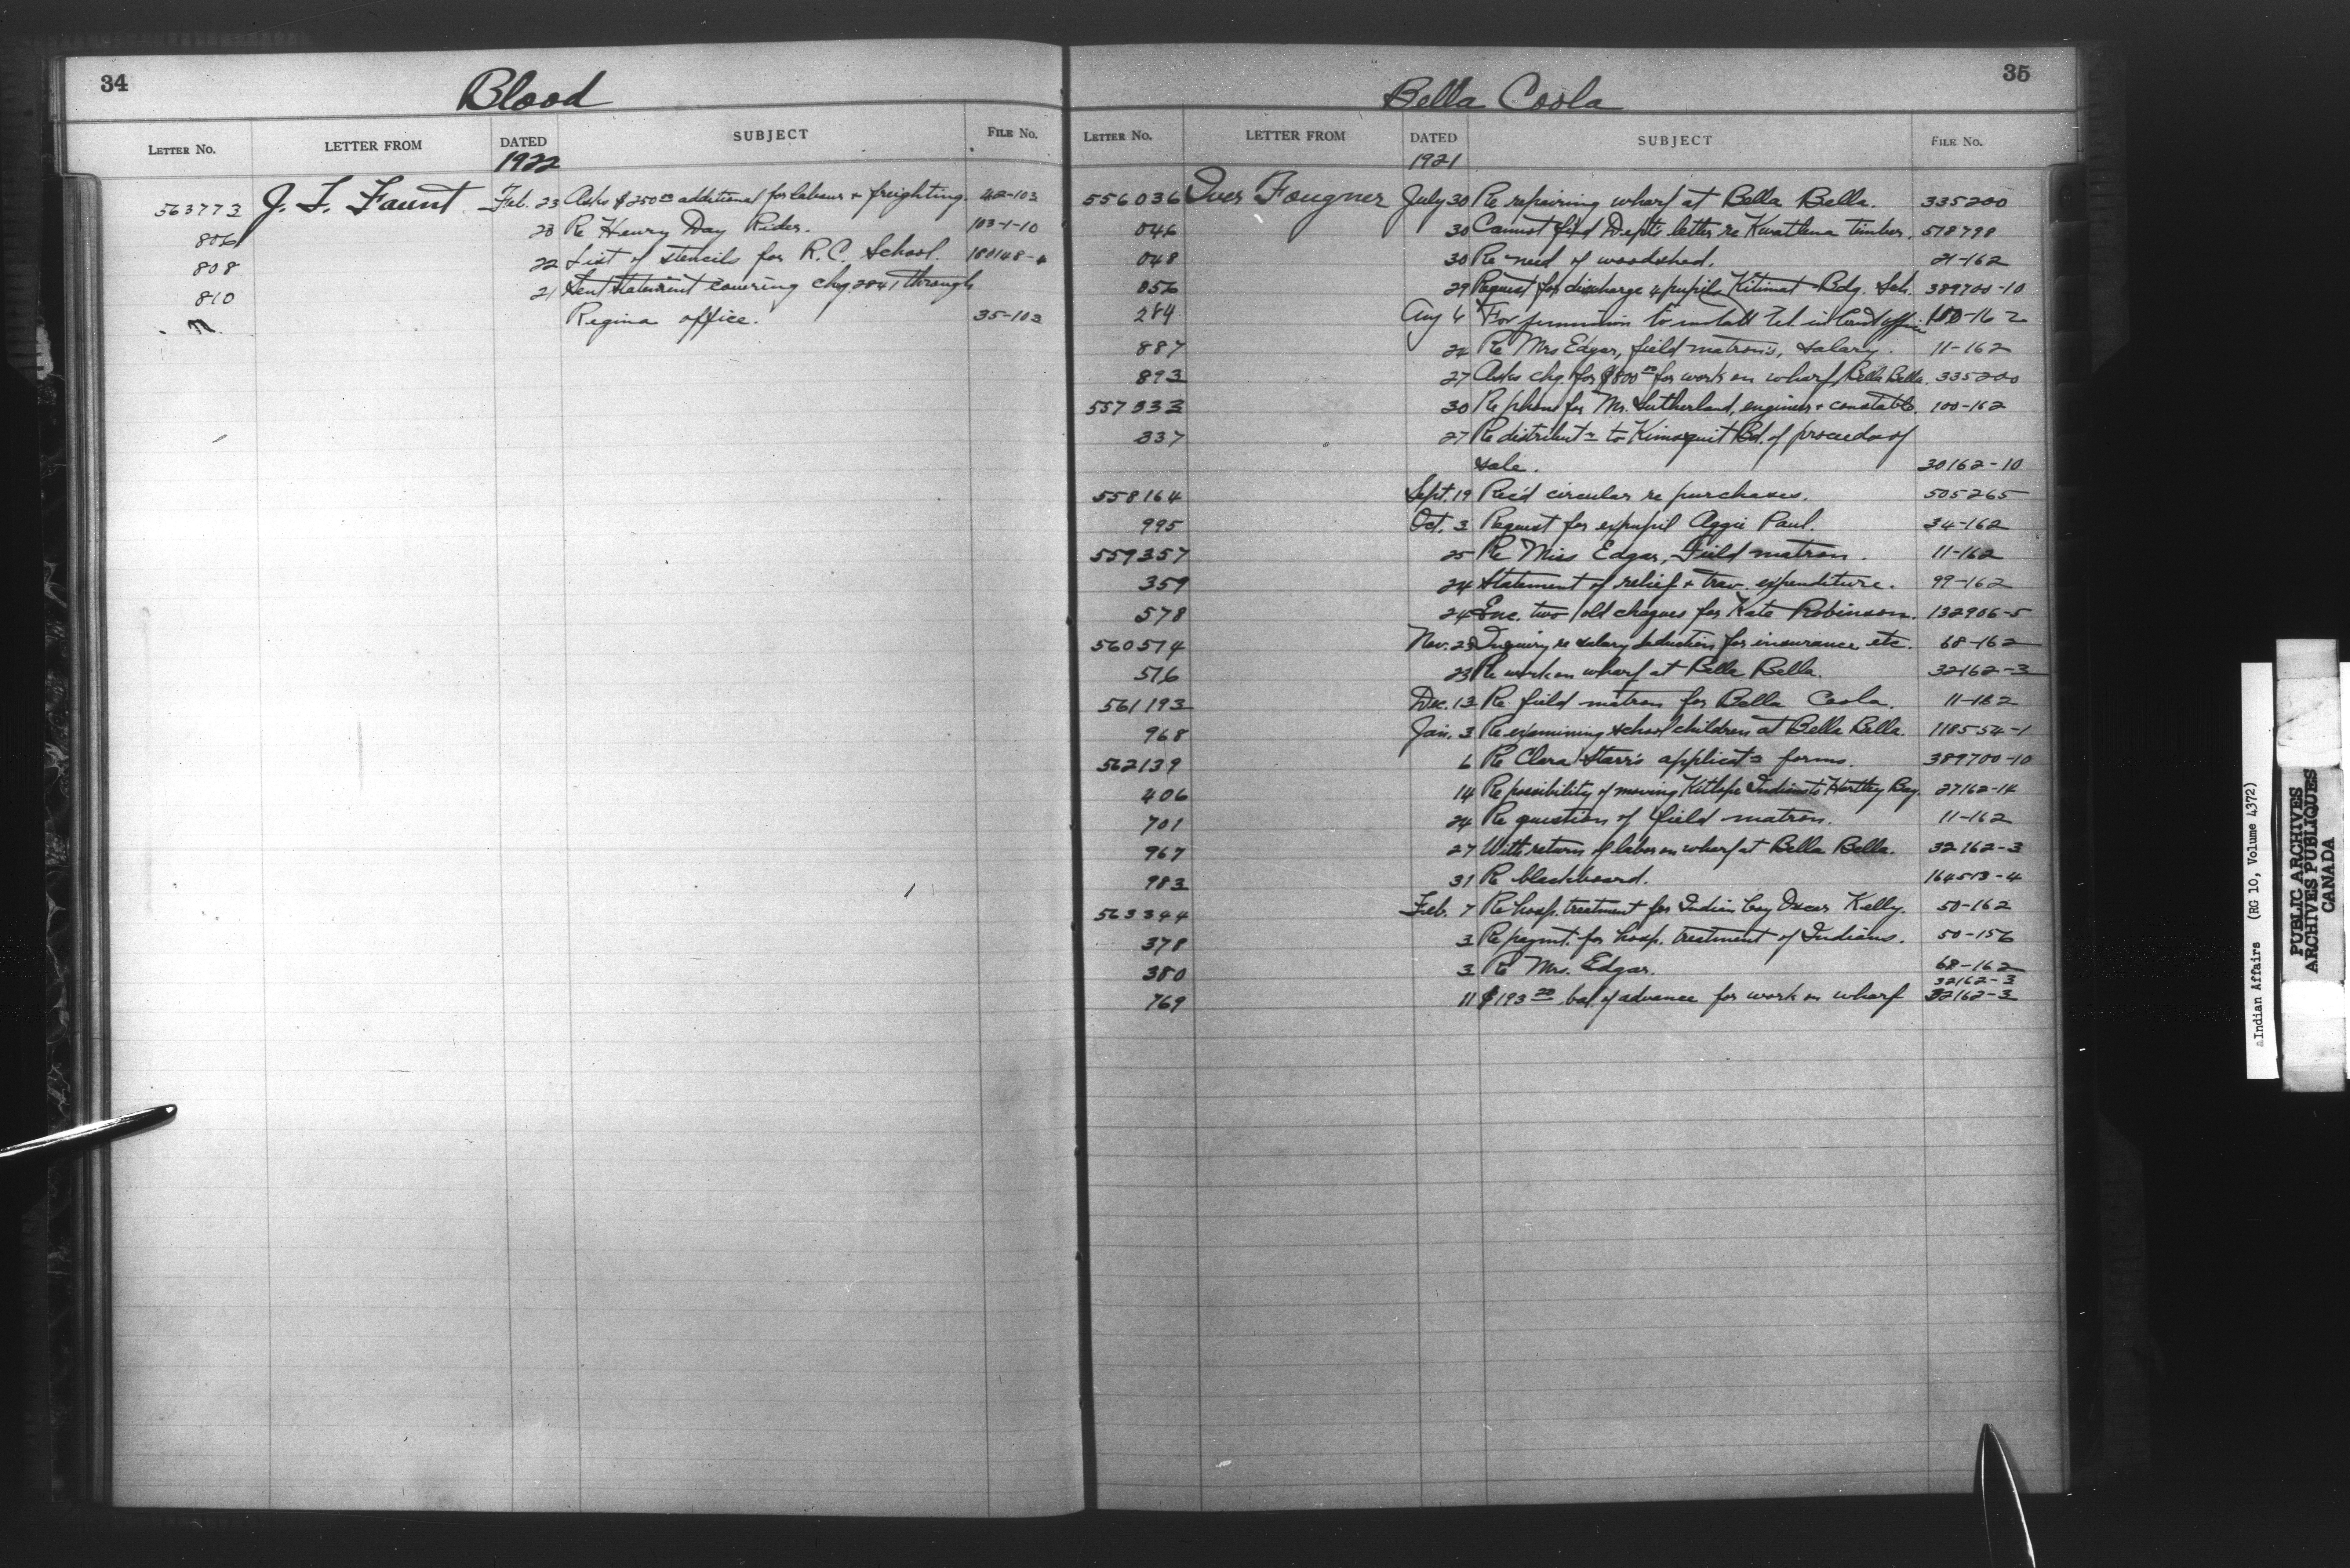 34
Blood
LETTER No. LETTER FROM DATED SUBJECT FILE No.
1922
563773 J. T. Faunt Feb. 23 Asks $250.00 additional for labour & freighting. 42-103
806 23 Re Henry Day Rider. 103-1-10
808 22 List of stencils for R.C. School. 180148-4
810 21 Sent statement covering chq. 2841 through
Regina office. 35-103
35
Bella Coola
LETTER No. LETTER FROM DATED SUBJECT FILE No.
1921
556036 Iver Fougner July 30 Re repairing wharf at Bella Bella. 335200
046 30 Cannot find Dept's letter re Kwatlena timber. 578798
048 30 Re need of woodshed. 21-162
056 29 Request for discharge 4 pupils Kitimat Bdg. Sch. 389700-10
284 Aug 6 For permission to install tel. in office 100-162
887 24 Re Mrs Edgar, field matron's, salary. 11-162
893 27 Asks chq. for $800.00 for work on wharf Bella Bella. 335200
557333 30 Re phone for Mr. Sutherland, engineer & constable. 100-162
337 27 Re distribut'n to Kimsquit Bd. of proceeds of
sale. 30162-10
558164 Sept. 19 Rec'd circular re purchases. 505265
995 Oct. 3 Request for expupil Aggie Paul. 34-162
559357 25 Re Miss Edgar, Field matron. 11-162
359 24 Statement of relief & trav. expenditure. 99-162
578 24 Enc. two old cheques for Kate Robinson. 132906-5
560574 Nov. 23 Inquiry re salary deduction for insurance etc. 68-162
576 23 Re work on wharf at Bella Bella. 32162-3
561193 Dec. 13 Re field matron for Bella Coola. 11-162
968 Jan. 3 Re examining school children at Bella Bella. 118554-1
562139 6 Re Clara Starr's applicat'n forms. 389700-10
406 14 Re possibility of moving Kitlope Indians to Hartley Bay. 27162-14
701 24 Re question of field matron. 11-162
967 27 With return of labor on wharf at Bella Bella. 32162-3
983 31 Re blackboard. 164513-4
563344 Feb. 7 Re hosp. treatment for Indian boy Oscar Kelly. 50-162
378 3 Re paymt. for hosp. treatment of Indians. 50-156
380 3 Re Mrs. Edgar. 68-162
32162-3
769 11 $193.20 bal. of advance for work on wharf 32162-3
Indian Affairs (RG 10, Volume 4372)
PUBLIC ARCHIVES
ARCHIVES PUBLIQUES
CANADA